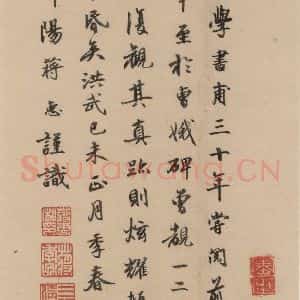 學書甫三十年嘗閱前
至於曹娥碑曾觀一二
復觀其真跡則炫耀
昏矣洪武己未正月季春
陽蔣惠謹識
Shufawang.CN